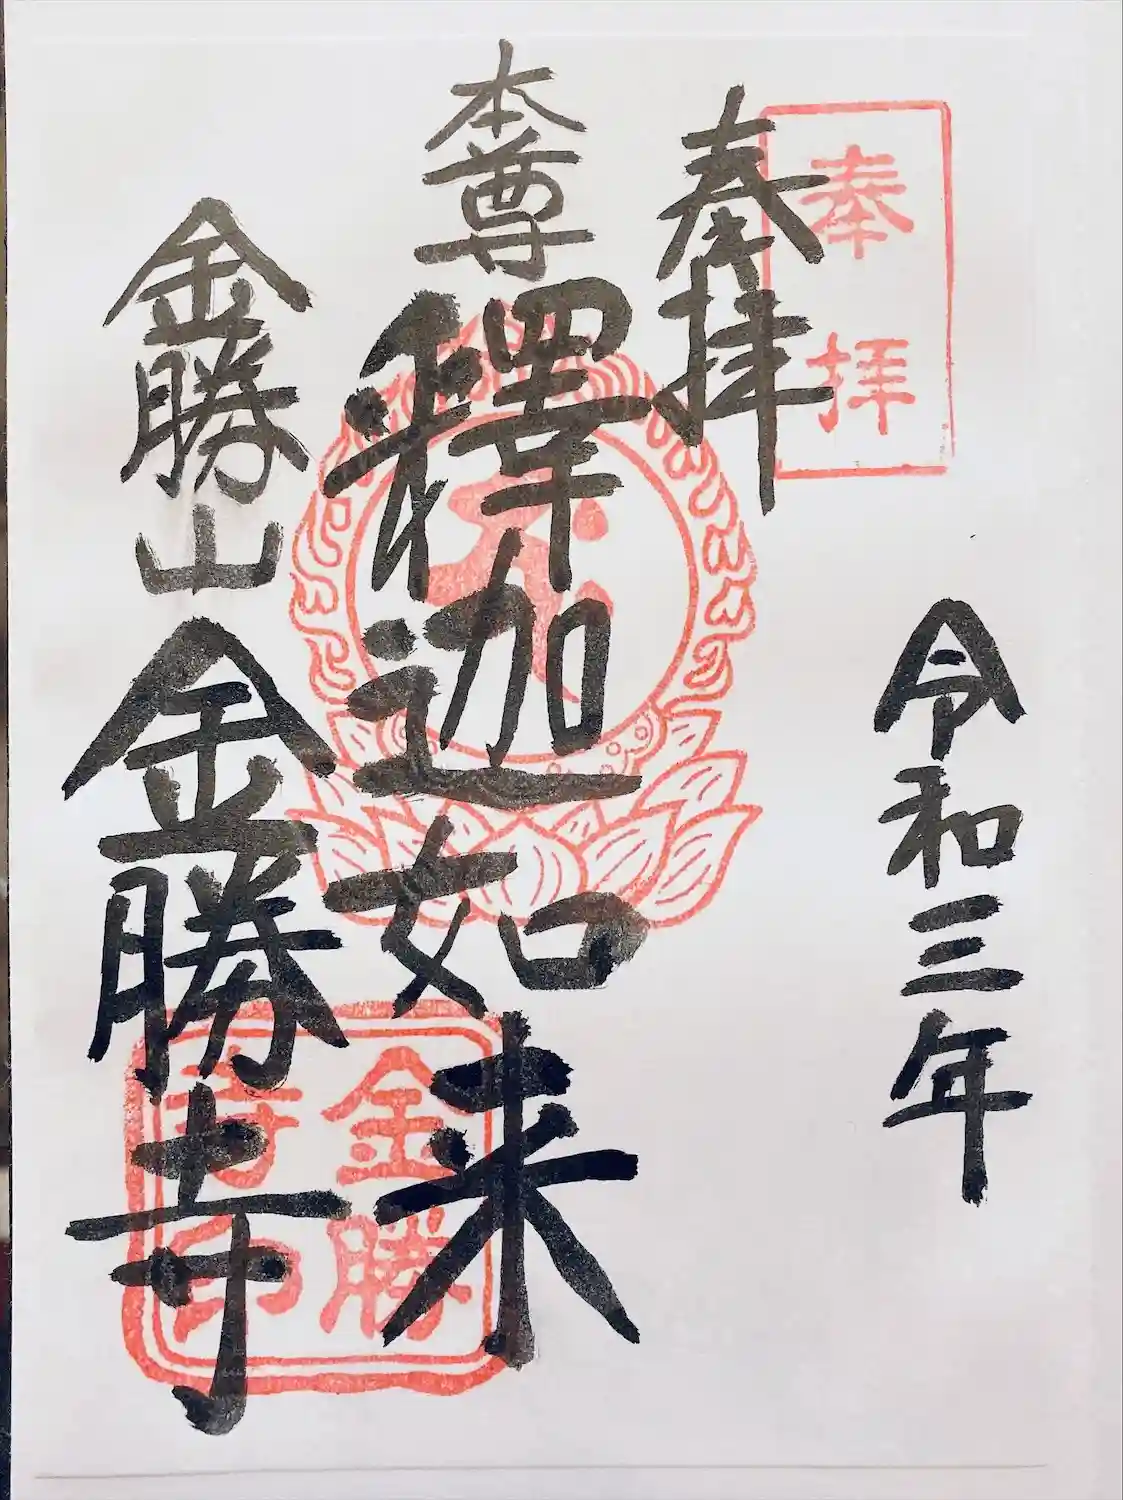 奉拝
令和三年
奉拝
本尊
釋迦如来
金勝山
金勝寺
金勝
寺印